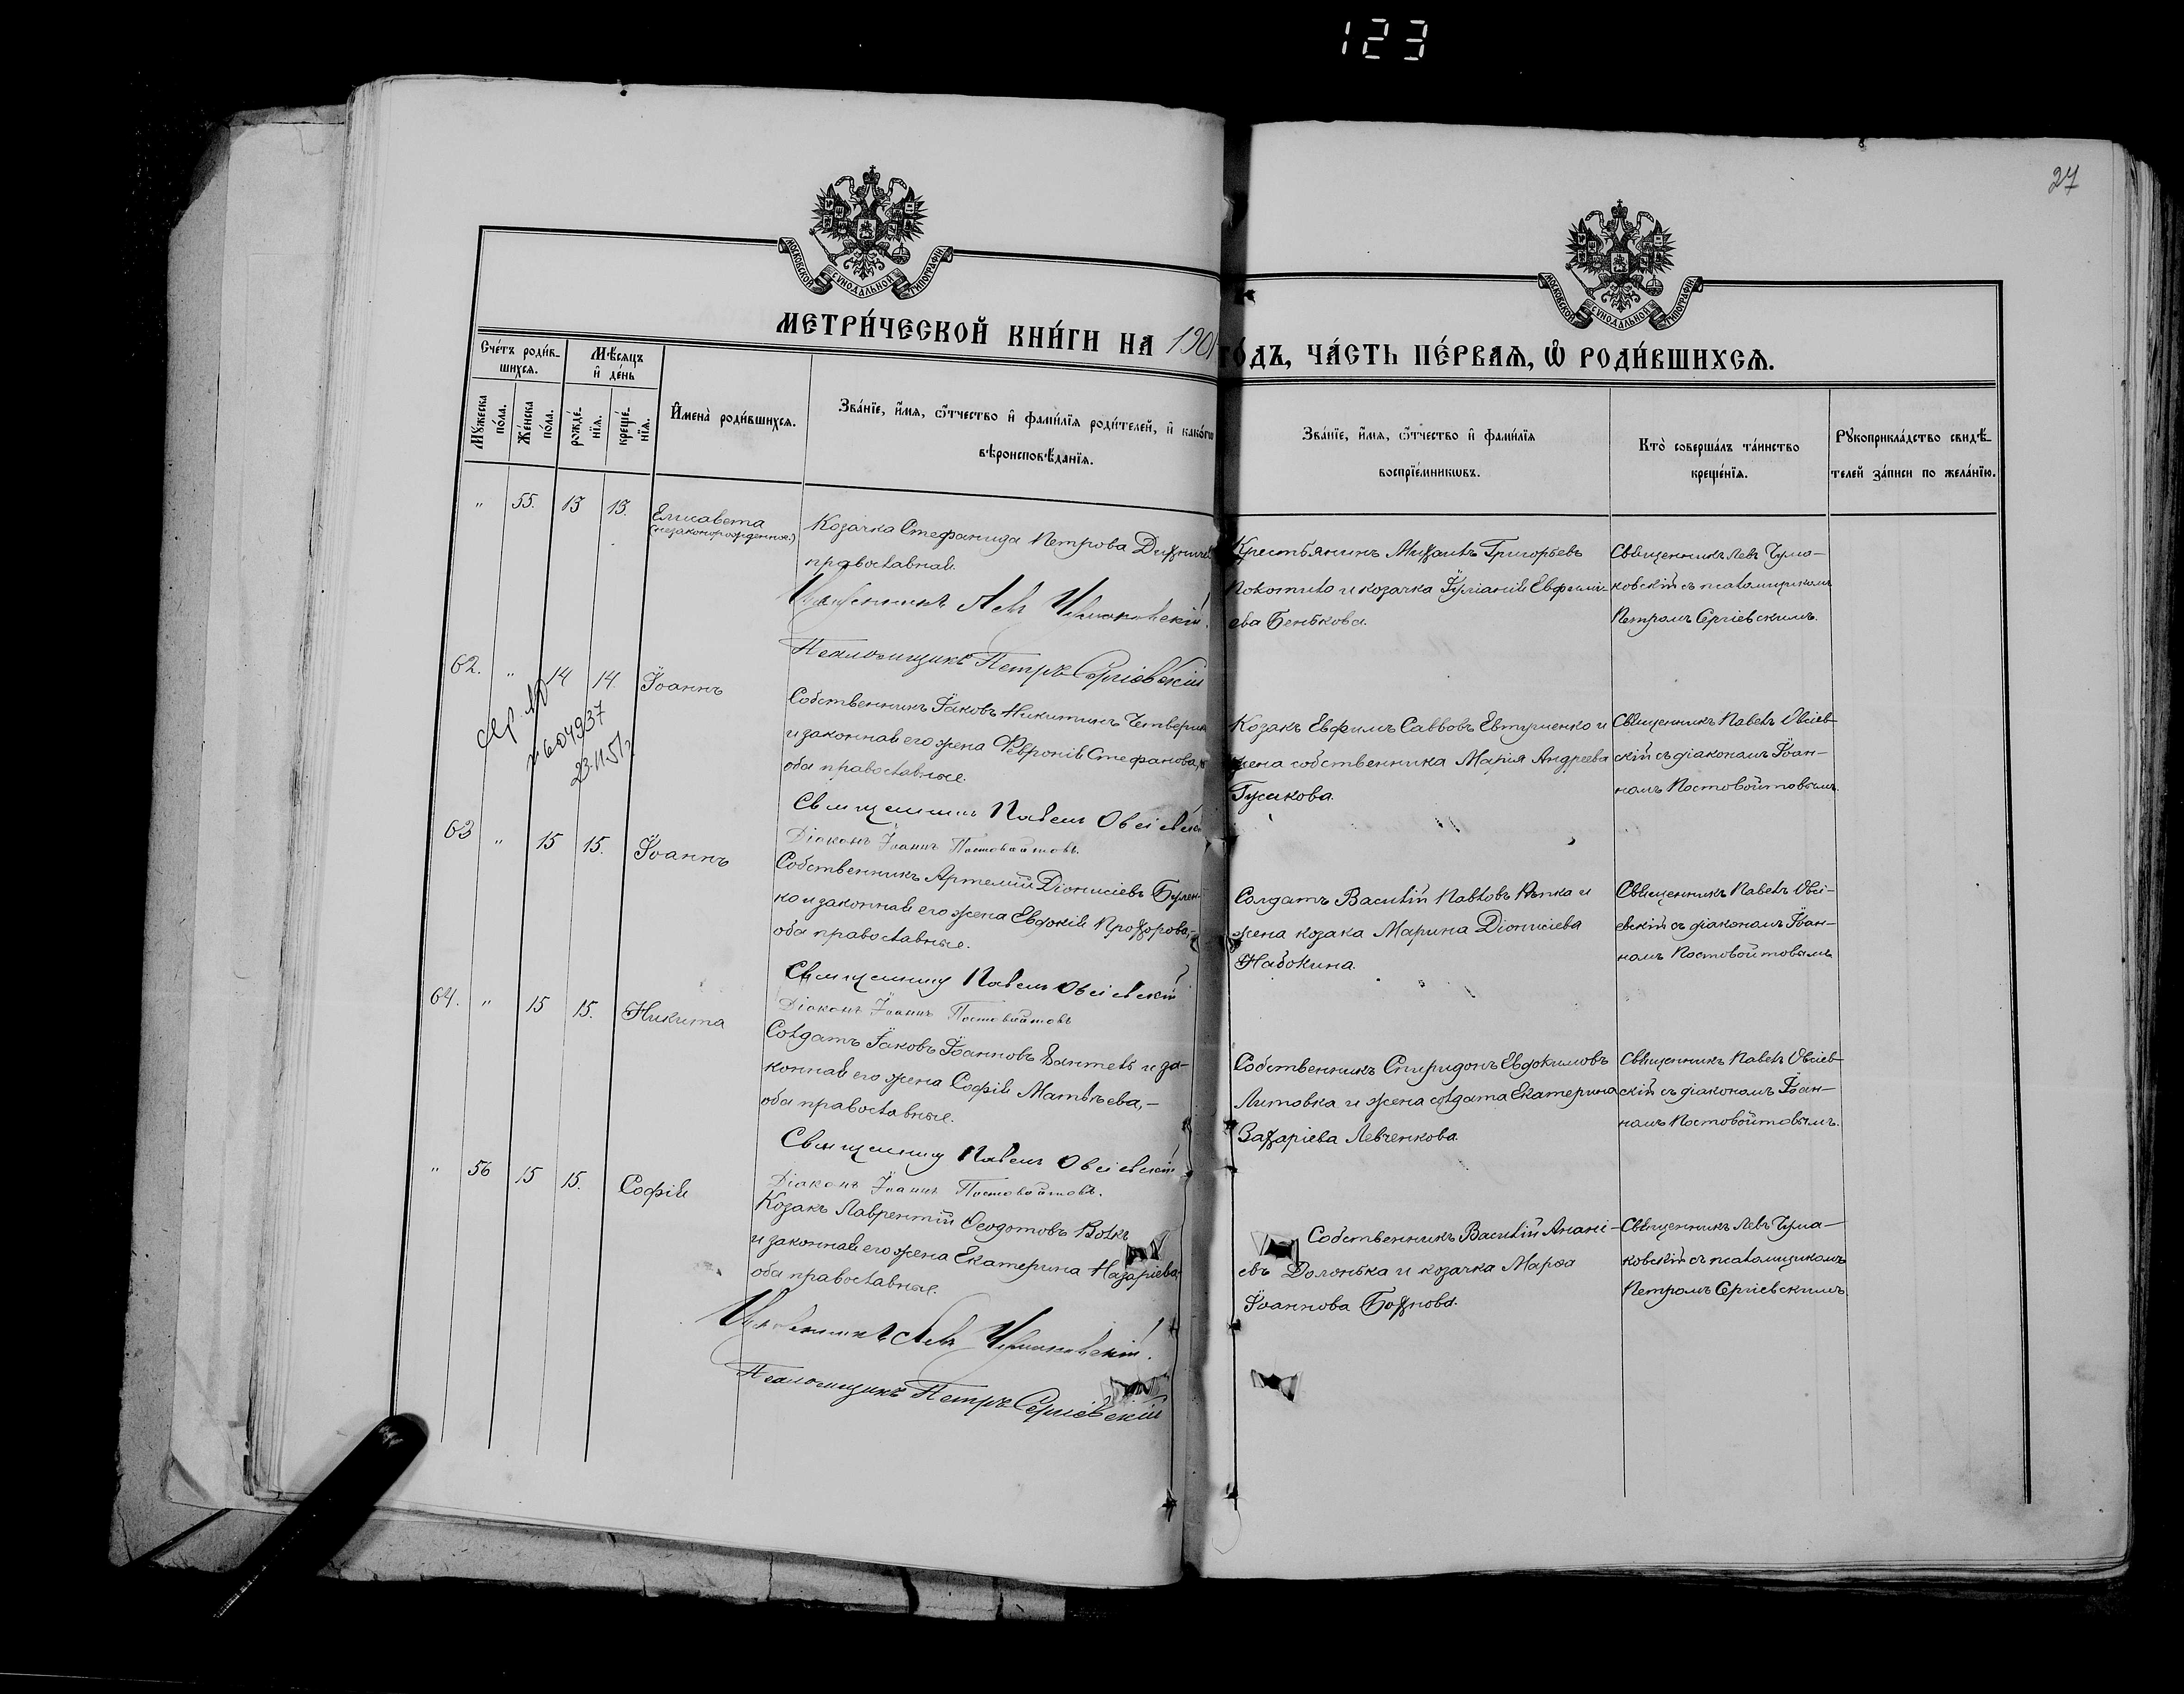 123
27
МОСКОВСКОЙ СѴНОДАЛЬНОЙ ТИПОГРАФІИ
МОСКОВСКОЙ СѴНОДАЛЬНОЙ ТИПОГРАФІИ
МЕТРИ́ЧЕСКОЙ КНИ́ГИ НА 1901
ГО́ДЪ, ЧА́СТЬ ПЕ́РВАѦ, Ѽ РОДИ́ВШИХСѦ.
Сче́тъ роди́в-
шихсѧ.
Мѣ́сѧцъ
и де́нь
Мꙋ́жеска
по́ла.
Же́нска
по́ла.
рожде́-
нїѧ.
креще́-
нїѧ.
И҆мена̀ роди́вшихсѧ.
Зва́нїе, и҆́мѧ, ѻ҆́тчество и҆ фами́лїѧ роди́телей, и҆ како́гѡ
вѣроисповѣ́данїѧ.
Зва́нїе, и҆́мѧ, ѻ҆́тчество и҆ фами́лїѧ
воспрїе́мникѡвъ.
Кто̀ соверша́лъ та́инство
креще́нїѧ.
Рꙋкоприкла́дство свидѣ́-
телей за́писи по жела́нїю.
" 55. 13 13. Елисавета
(незаконорожденное.)
Козачка Стефанида Петрова
православная.
Священникъ Левъ Чумаковскій.
Псаломщикъ Петръ Сергіевскій
Крестьянинъ Михаилъ Григорьевъ
и козачка Іуліанія Евфими-
ева Бенькова.
Священникъ Левъ Чума-
ковскій съ псаломщикомъ
Петромъ Сергіевскимъ.
62. " 14 14. Іоаннъ
604937
23.11.51 г
Собственникъ Іаковъ Никитинъ
и законная его жена Февронія Стефанова,
оба православные.
Священникъ Павелъ Овсіевскій
Діаконъ Іоаннъ Постовойтовъ.
Козакъ Евфимъ Саввовъ Евтушенко и
жена собственника Марія Андреева
Гусакова.
Священникъ Павелъ Овсіев-
скій съ діакономъ Іоан-
номъ Постовойтовымъ.
63 " 15 15. Іоаннъ
Собственникъ Артемій Діонисіевъ
ко и законная его жена Евдокія Прохорова,-
оба православные.
Священникъ Павелъ Овсіевскій
Діаконъ Іоаннъ Постовойтовъ
Солдатъ Василій Павловъ Рѣпка и
жена козака Марина Діонисіева
Набокина.
Священникъ Павелъ Овсі-
евскій съ діакономъ Іоан-
номъ Постовойтовымъ
64. " 15 15. Никита
Солдатъ Іаковъ Іоанновъ и за-
конная его жена Софія Матвѣева,-
оба православные.
Священникъ Павелъ Овсіевскій
Діаконъ Іоаннъ Постовойтовъ.
Собственникъ Спиридонъ Евдокимовъ
Литовка и жена солдата Екатерина
Захаріева Левченкова.
Священникъ Павелъ Овсіев-
скій съ діакономъ Іоан-
номъ Постовойтовымъ.
" 56 15 15. Софія
Козакъ Лаврентій Ѳеодотовъ Волкъ
и законная его жена Екатерина Назаріева,-
оба православные.
Священникъ Левъ Чумаковскій.
Псаломщикъ Петръ Сергіевскій
Собственникъ Василій Анані-
евъ Долонька и козачка Марѳа
Іоаннова Бохнова.
Священникъ Левъ Чума-
ковскій съ псаломщикомъ
Петромъ Сергіевскимъ